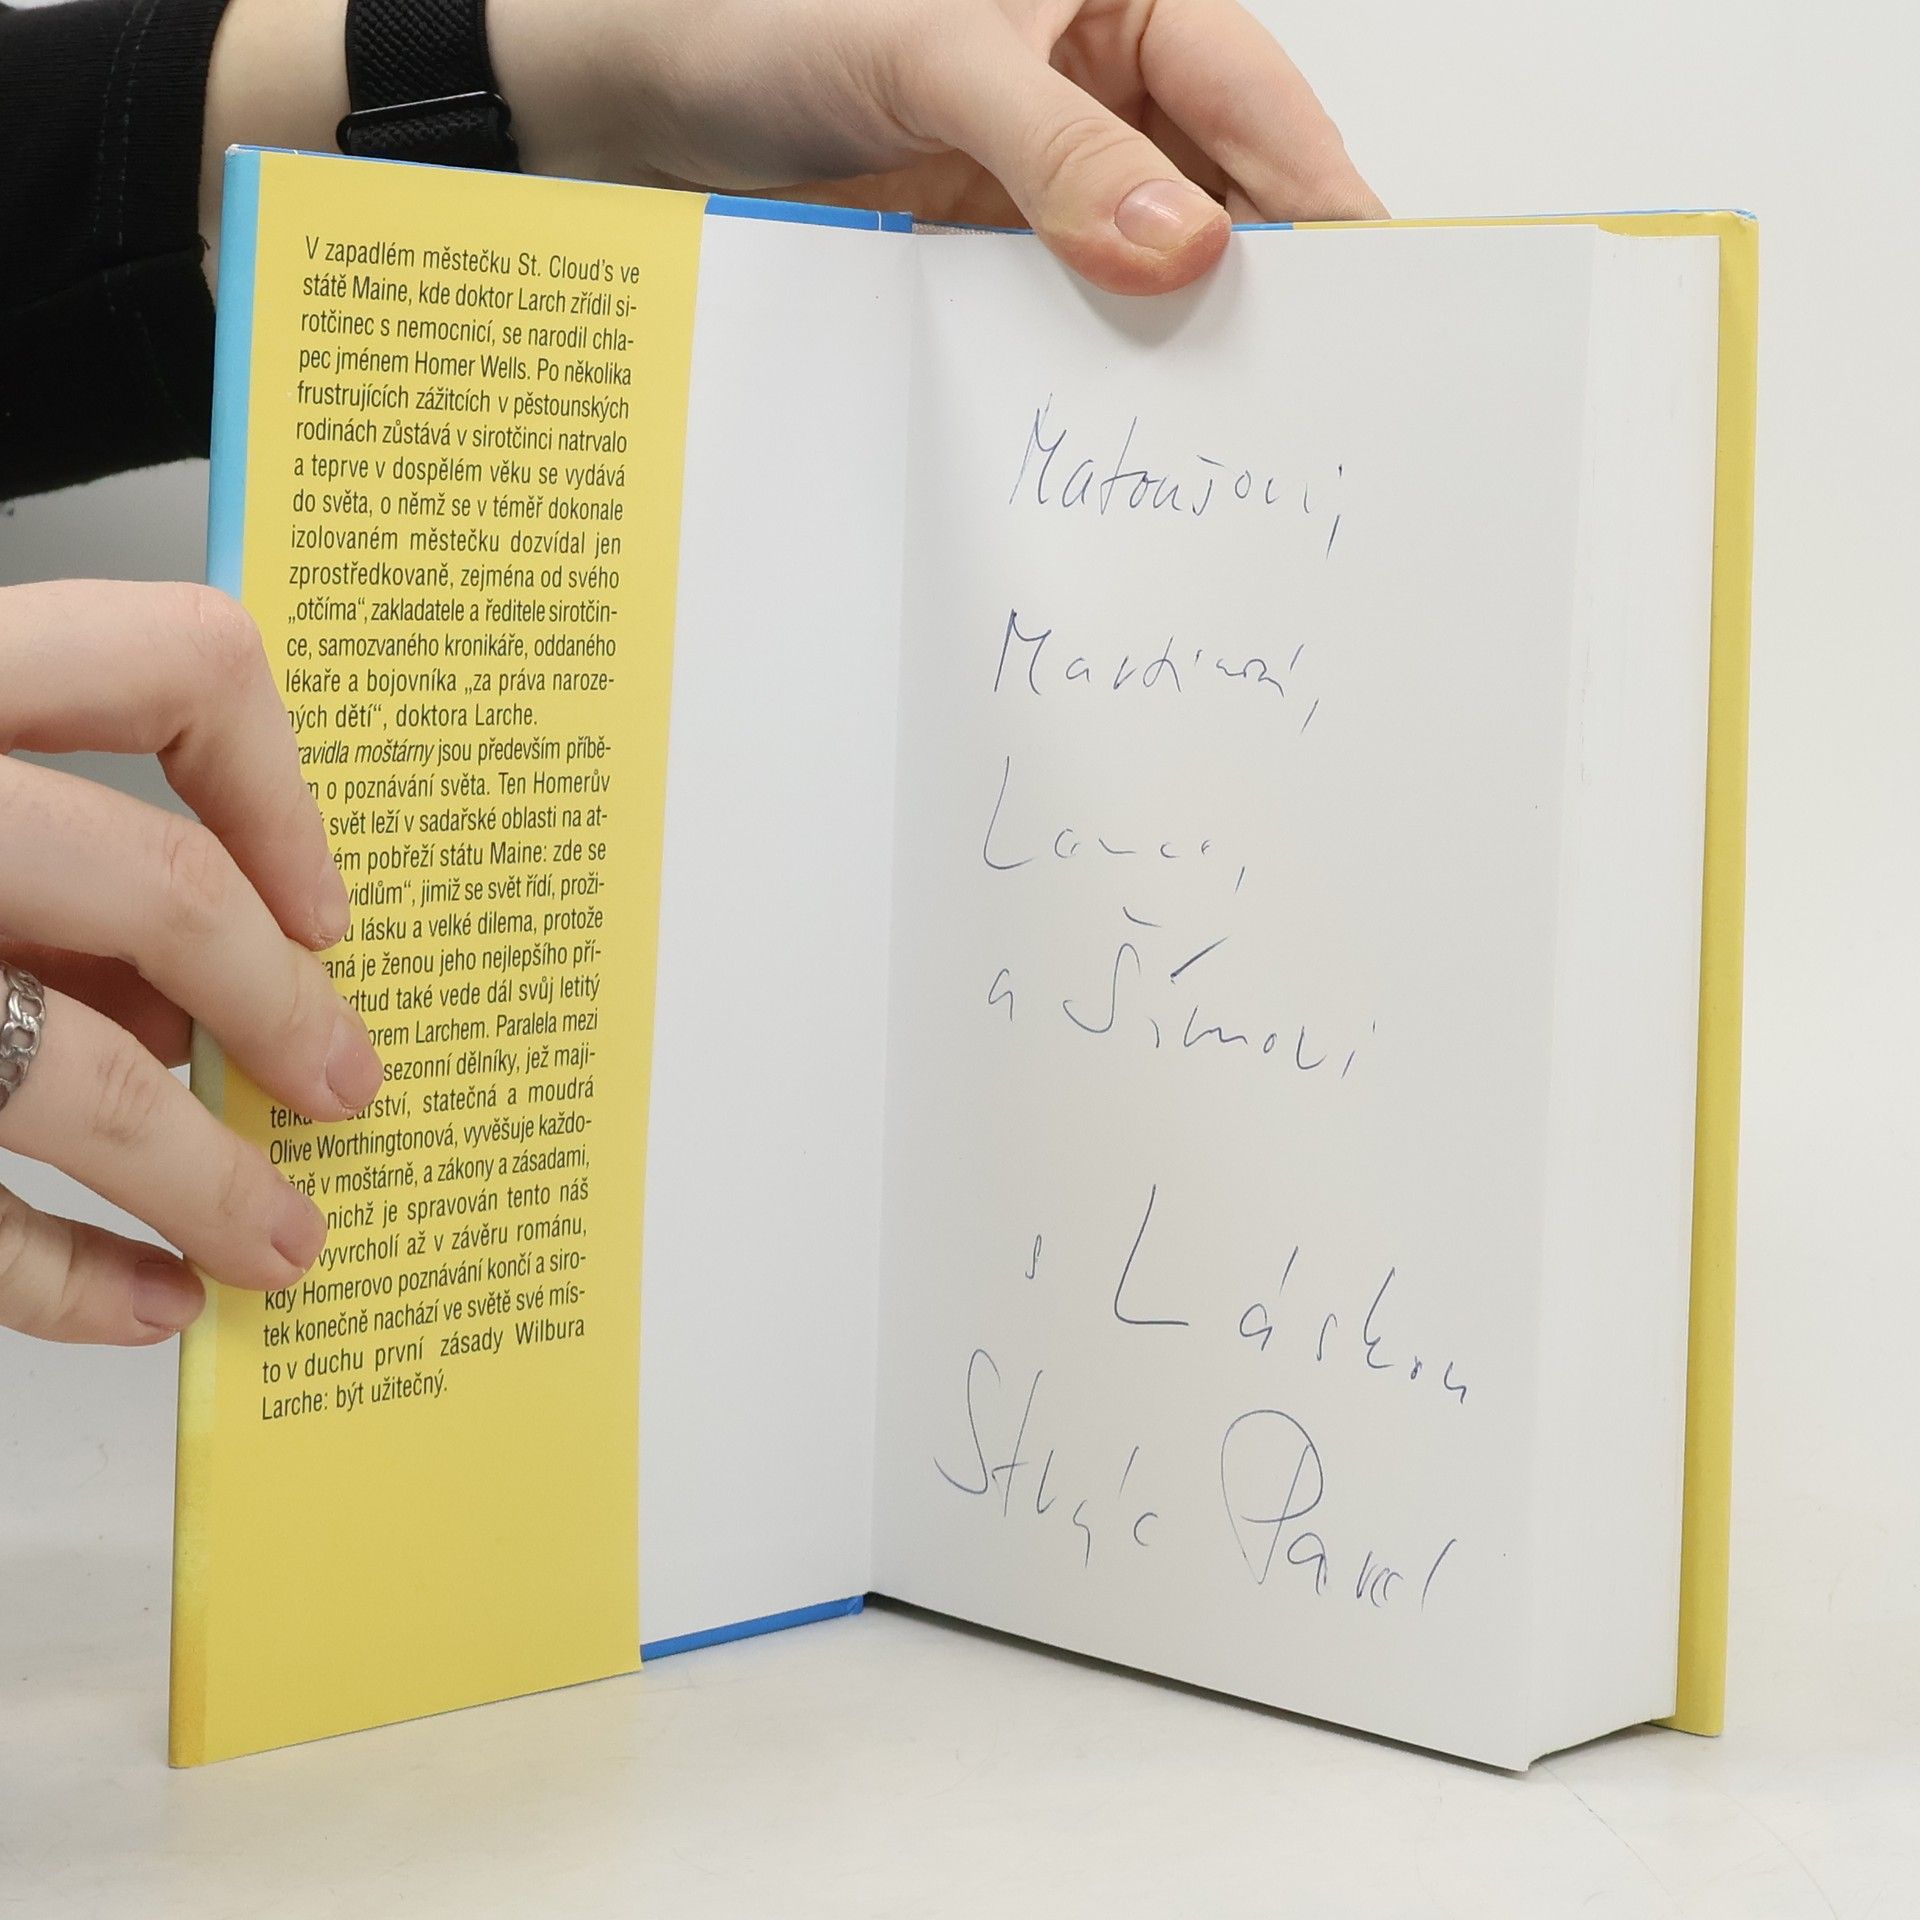 V zapadlém městečku St. Cloud's ve
státě Maine, kde doktor Larch zřídil si-
rotčinec s nemocnicí, se narodil chla-
pec jménem Homer Wells. Po několika
frustrujících zážitcích v pěstounských
rodinách zůstává v sirotčinci natrvalo
a teprve v dospělém věku se vydává
do světa, o němž se v téměř dokonale
izolovaném městečku dozvídal jen
zprostředkovaně, zejména od svého
„otčíma“, zakladatele a ředitele sirotčin-
ce, samozvaného kronikáře, oddaného
lékaře a bojovníka „za práva naroze-
ných dětí“, doktora Larche.
ravidla moštárny jsou především příbě-
m o poznávání světa. Ten Homerův
svět leží v sadařské oblasti na at-
ém pobřeží státu Maine: zde se
vidlům“, jimiž se svět řídí, proži-
u lásku a velké dilema, protože
aná je ženou jeho nejlepšího pří-
dtud také vede dál svůj letitý
orem Larchem. Paralela mezi
sezonní dělníky, jež maji-
telka arství, statečná a moudrá
Olive Worthingtonová, vyvěšuje každo-
ně v moštárně, a zákony a zásadami,
nichž je spravován tento náš
vyvrcholí až v závěru románu,
kdy Homerovo poznávání končí a siro-
tek konečně nachází ve světě své mís-
to v duchu první zásady Wilbura
Larche: být užitečný.
Matoušovi,
Martinovi,
a Šimovi
s Láskou
Strýc Pavel